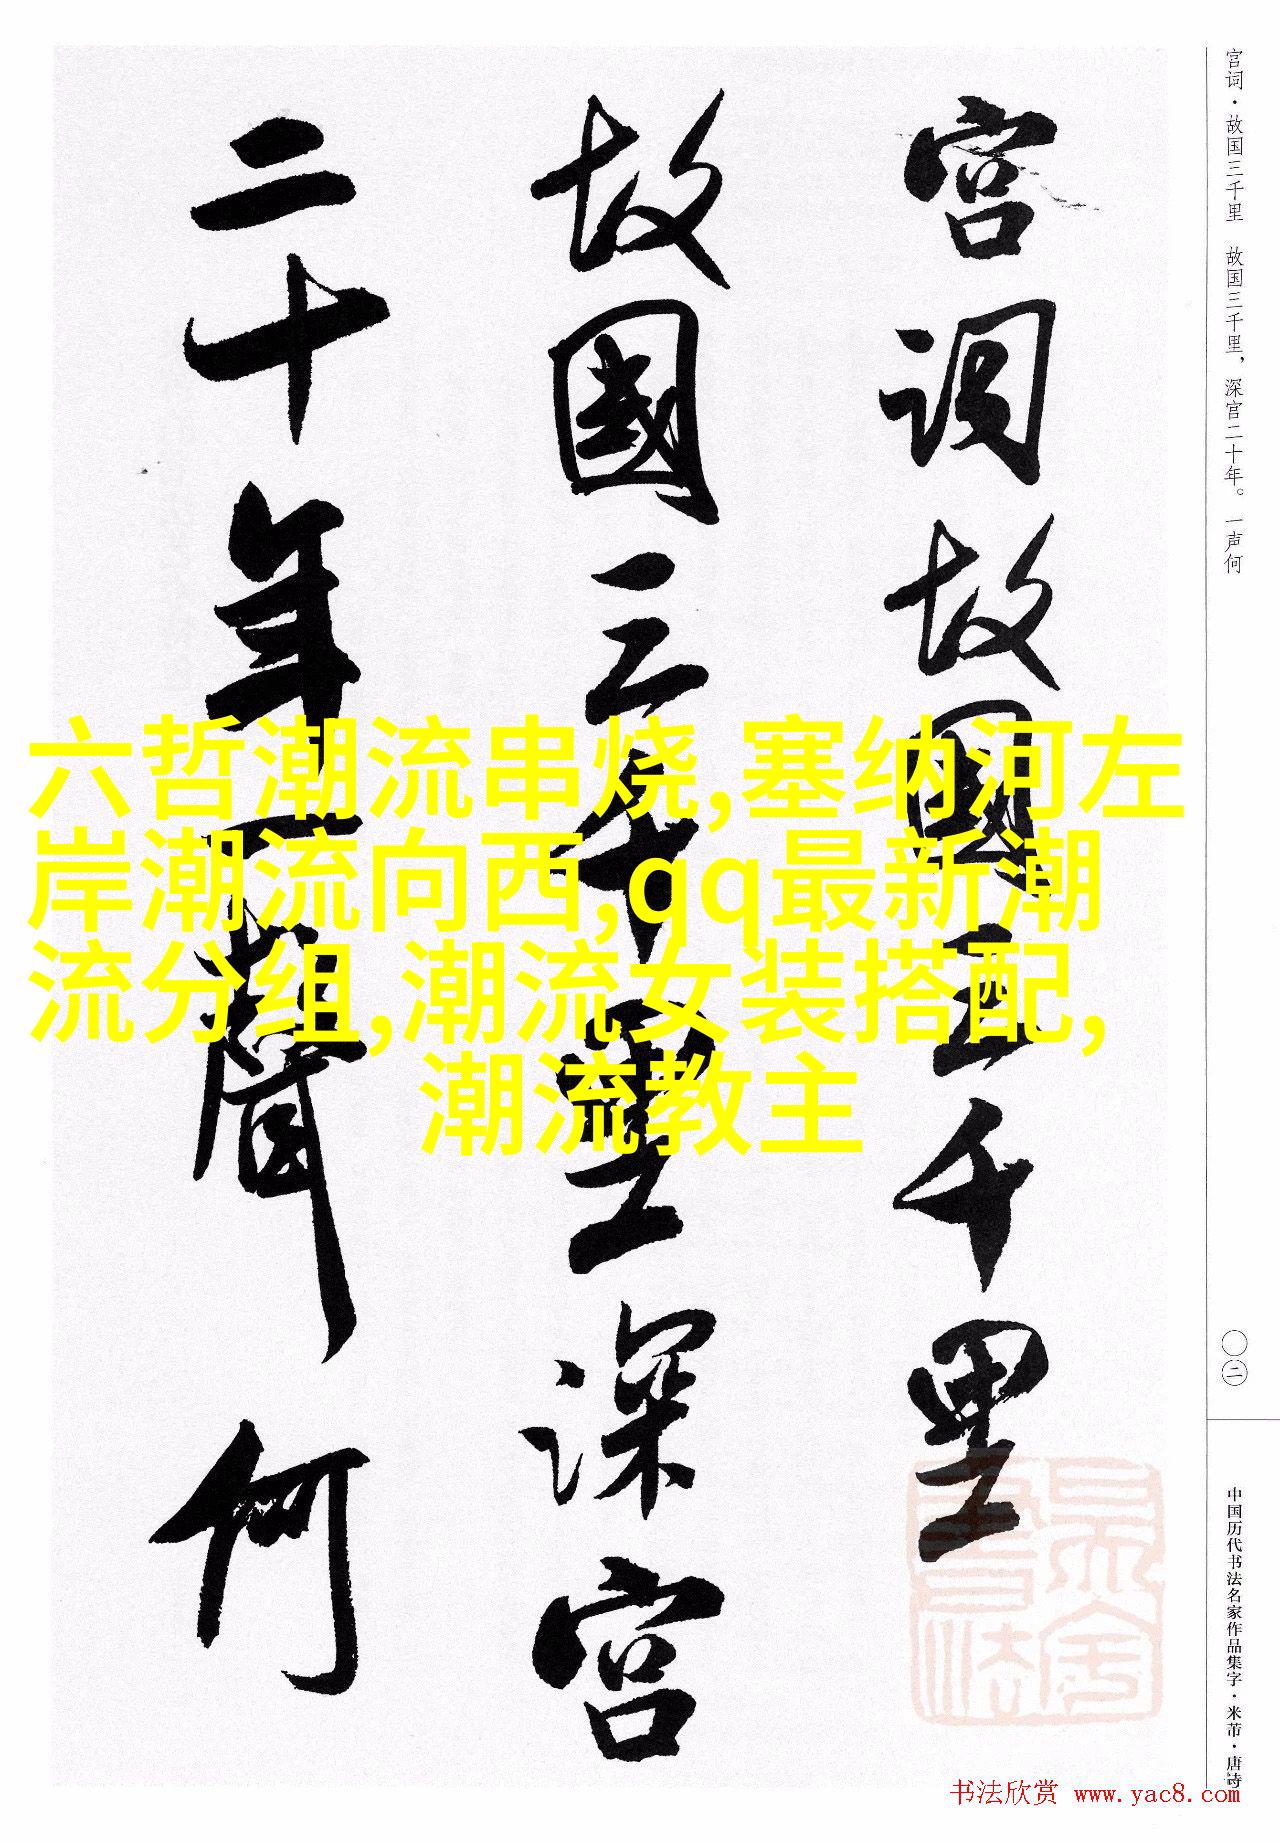 宫词·故国三千里　故国三千里，深宫二十年。一声何
宫词故國三千里
故國三千里深宫
二十年一聲何
六哲潮流串烧,塞纳河左
岸潮流向西,qq最新潮
流分组,潮流女装搭配,
潮流教主
〇二
中国历代书法名家作品集字·米芾·唐诗
书法欣赏 www.yac8.com